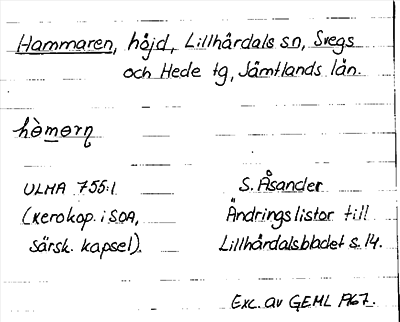 Hammaren, höjd, Lillhärdals sn, Svegs
och Hede tg, Jämtlands län.
hòmərn̥
ULMA 755:1
(xerokop. i SOA,
särsk. kapsel).
S. Åsander
Ändringslistor till
Lillhärdalsbladet s. 14.
Exc. av GEML 1967.